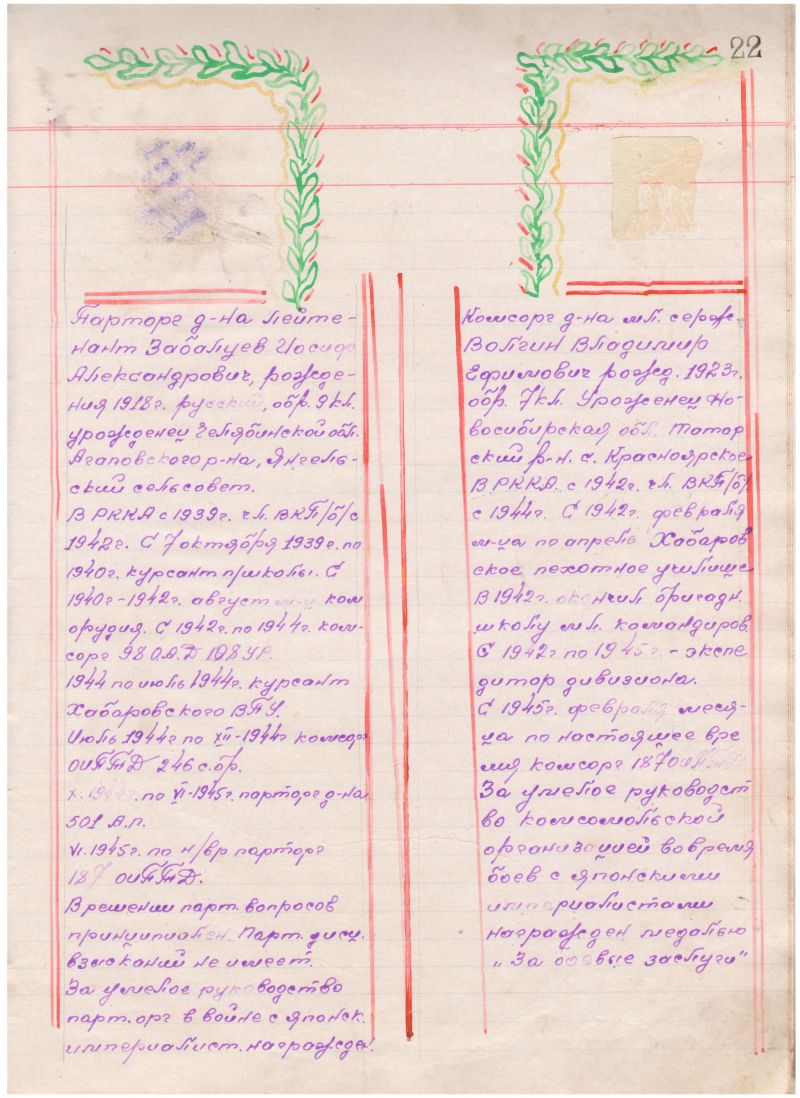 22
Парторг д-на Лейте-
нант Забалуев Иосиф
Александрович, рожде-
ния 1918г. русский, обр. 9 кл.
урожденец Челябинской обл.
Агаповского р-на, Янгель-
ский сельсовет.
В РККА с 1939г. чл. ВКП/б/ с
1942г. С 7 октября 1939г. по
1940г. курсант п/школы. С
1940г-1942г. август м-ц ком
орудия. С 1942г. по 1944г. ком-
сорг 98 О.А.Д 108 УР.
1944 по июль 1944г. курсант
Хабаровского ВПУ.
Июль 1944г по XII-1944г комсорг
ОИПТД 246 с.бр.
X. 1944г. по VI-1945г. парторг д-на
501 А.п.
VI. 1945г. по н/вр парторг
187 ОИПТД.
В решении парт. вопросов
принципиален. Парт. дисц.
взысканий не имеет.
За умелое руководство
парт. орг в войне с японск.
империалист. награжден.
Комсорг д-на мл. серж.
Волгин Владимир
Ефимович рожд. 1923г.
обр. 7 кл. Уроженец Но-
восибирская обл. Татар
ский р-н. с. Красноярское
В РККА. с 1942г. чл. ВКП/б/
с 1944г. С 1942г. февраля
м-ца по апрель Хабаров
ское пехотное училище
В 1942г. окончил бригадн.
школу мл. командиров
С 1942г по 1945г. - экспе
дитор дивизиона.
С 1945г. февраля меся-
ца по настоящее вре
мя комсорг 187 ОИПТД
За умелое руководст
во комсомольской
организацией во время
боев с японскими
империалистами
награжден медалью
„За боевые заслуги"